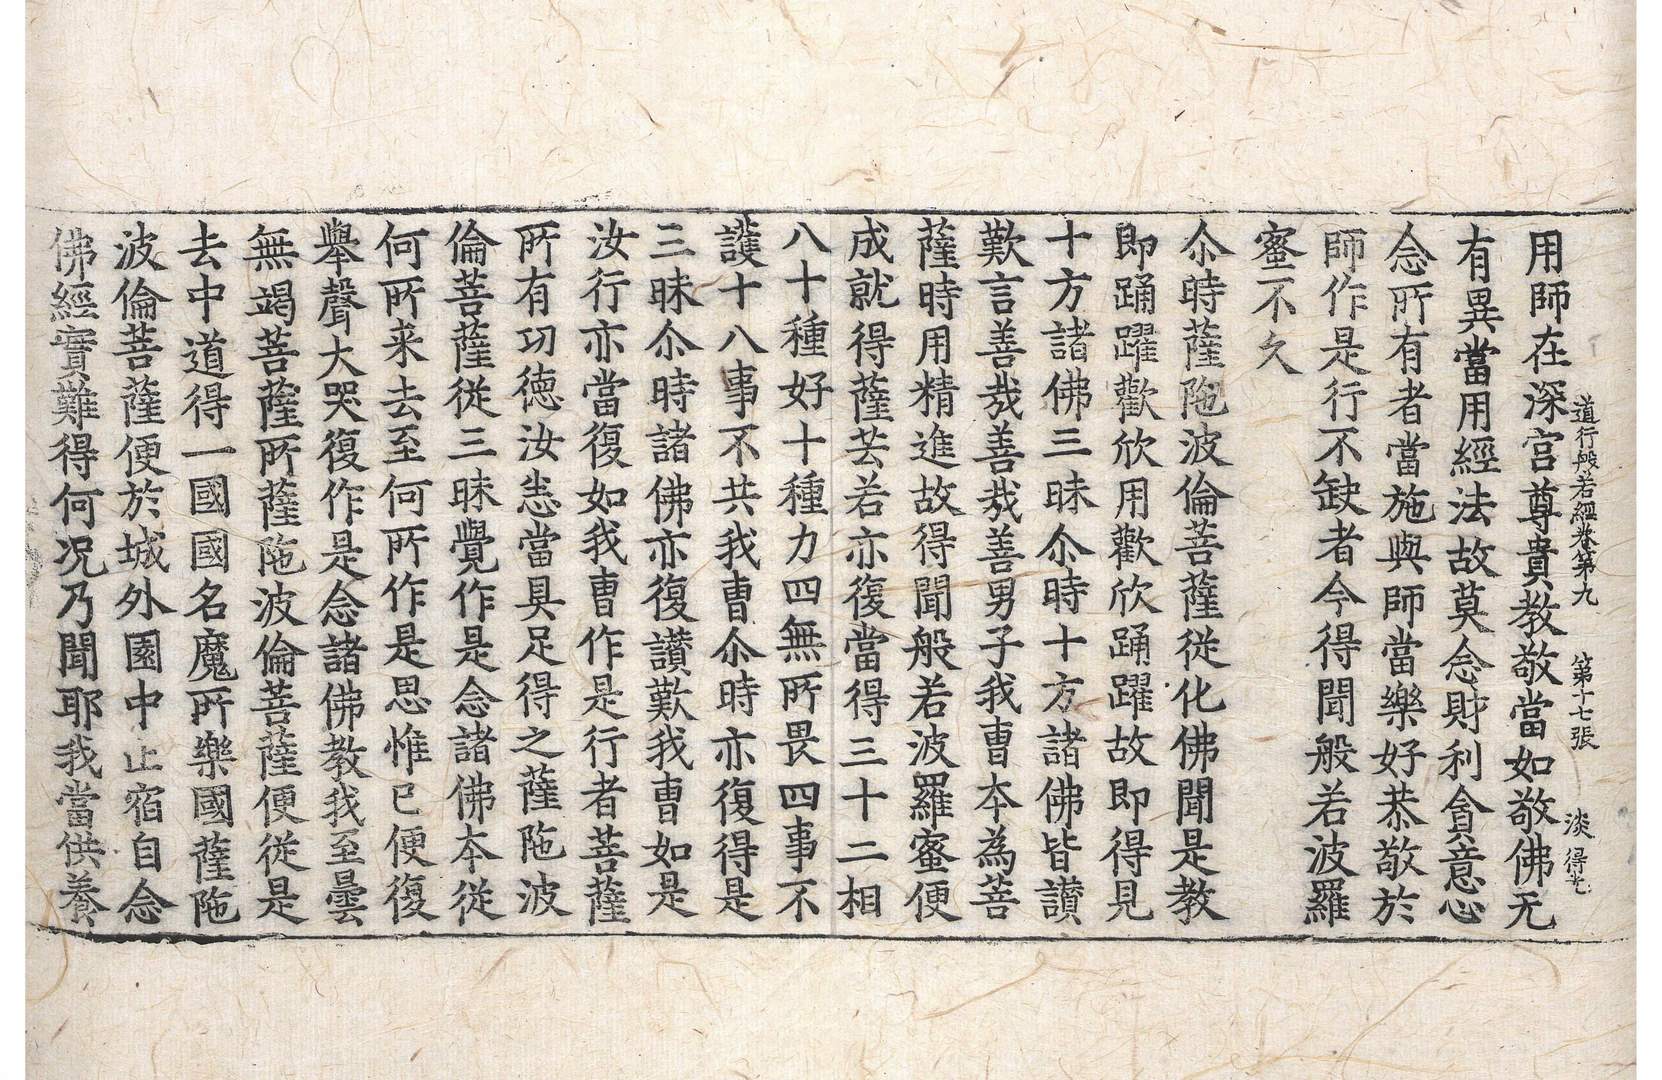 道行般若經卷第九　第十七張　淡　得光
用師在深宮尊貴教敬當如敬佛无
有異當用經法故莫念財利貪意念
念所有者當施與師當樂好恭敬於
師作是行不缺者今得聞般若波羅
蜜不久
尒時薩陁波倫菩薩從化佛聞是教
即踊躍歡欣用歡欣踊躍故即得見
十方諸佛三昧尒時十方諸佛皆讃
歎言善㢤善㢤善男子我曹夲為菩
薩時用精進故得聞般若波羅蜜便
成就得薩芸若亦復當得三十二相
八十種好十種力四無所畏四事不
護十八事不共我曹尒時亦復得是
三昧尒時諸佛亦復讃歎我曹如是
汝行亦當復如我曹作是行者菩薩
所有功德汝悉當具足得之薩陁波
倫菩薩從三昧覺作是念諸佛夲從
何所来去至何所作是思惟已便復
舉聲大哭復作是念諸佛教我至曇
無竭菩薩所薩陁波倫菩薩便從是
去中道得一國國名魔所樂國薩陁
波倫菩薩便於城外園中止宿自念
佛經實難得何况乃聞耶我當供養